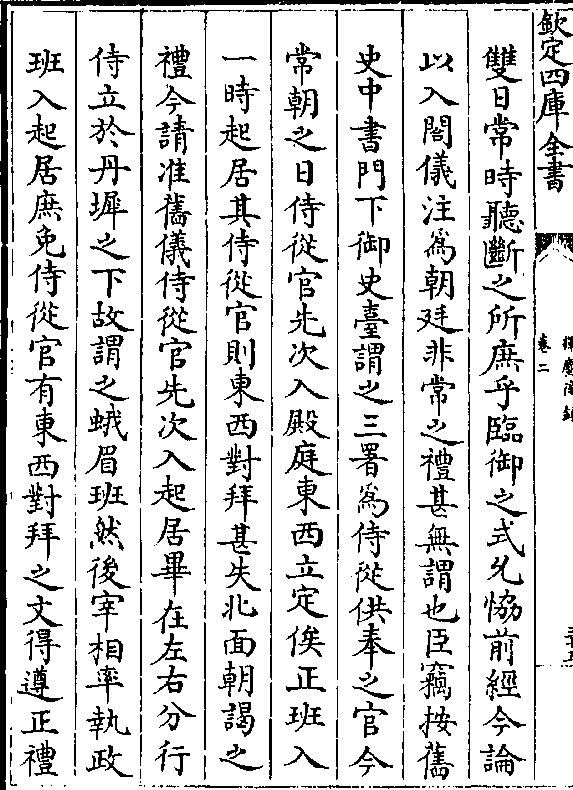 欽定四庫全書
卷二
雙日常時聽斷之所庶乎臨御之式允恊前經今論
以入閤儀注為朝廷非常之禮甚無謂也臣竊按舊
史中書門下御史臺謂之三署為侍從供奉之官今
常朝之日侍從官先次入殿庭東西立定俟正班入
一時起居其侍從官則東西對拜甚失北面朝謁之
禮今請准舊儀侍從官先次入起居畢在左右分行
侍立於丹墀之下故謂之蛾眉班然後宰相率執政
班入起居庶免侍從官有東西對拜之文得遵正禮